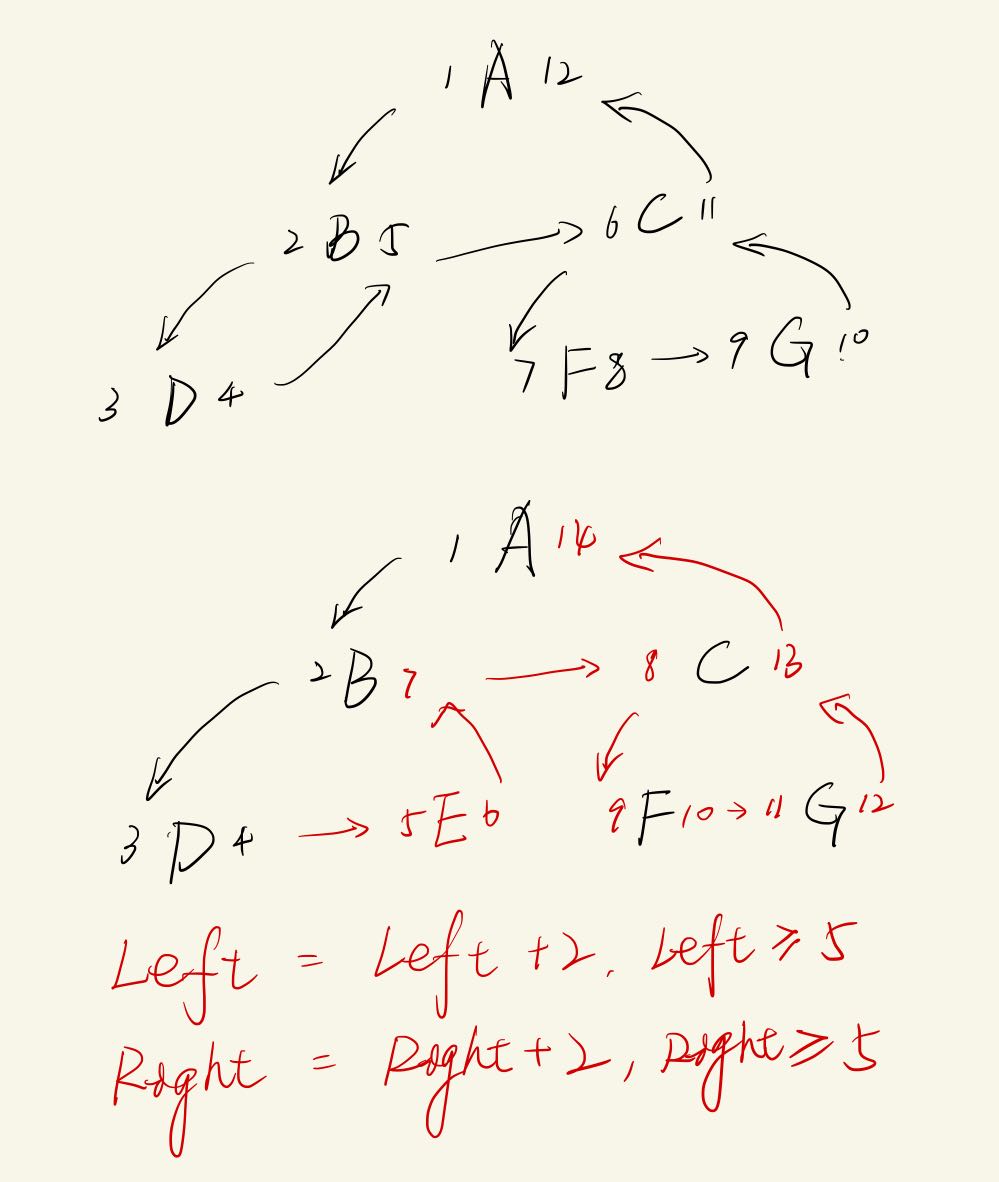 1 A 12
2 B 5
6 C 11
3 D 4
7 F 8
9 G 10
1 A 14
2 B 7
8 C 13
3 D 4
5 E 6
9 F 10
11 G 12
Left = Left + 2, Left ≥ 5
Right = Right + 2, Right ≥ 5